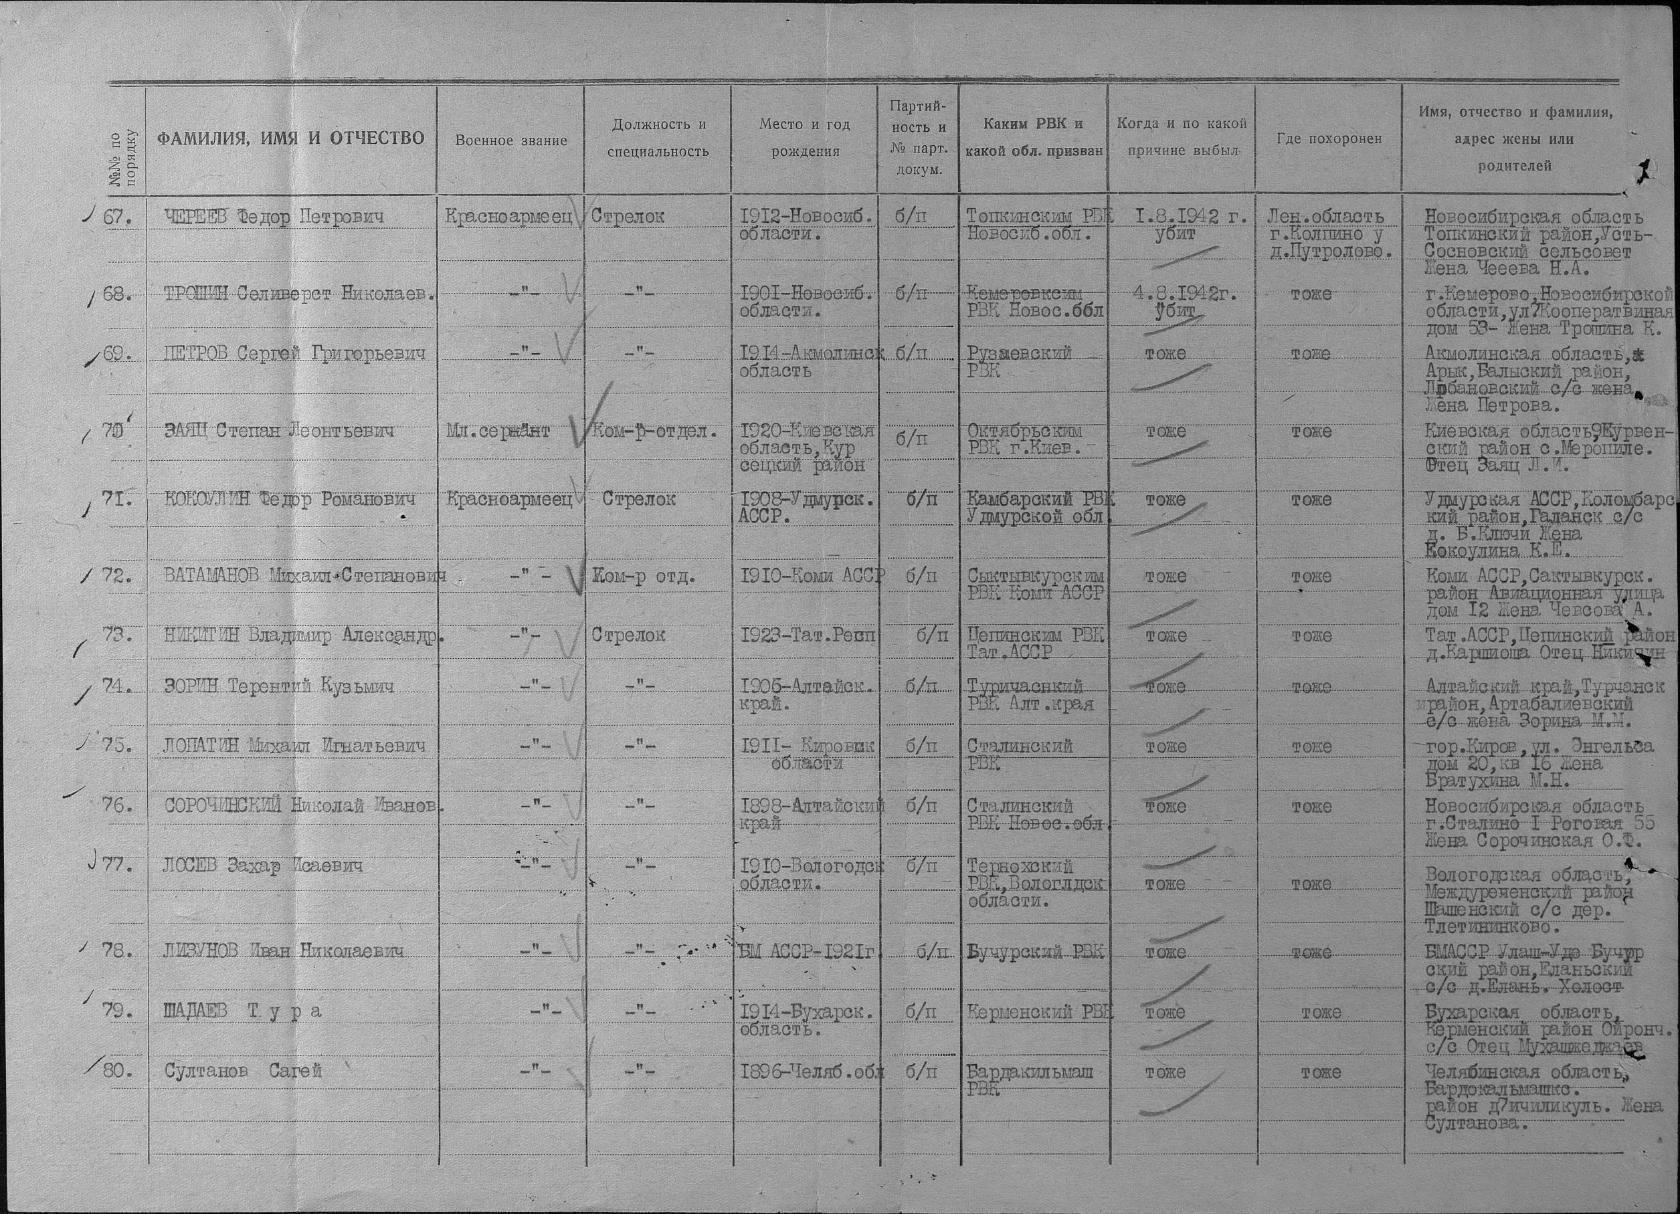 №№ по порядку
ФАМИЛИЯ, ИМЯ И ОТЧЕСТВО
Военное звание
Должность и
специальность
Место и год
рождения
Партий-
ность и
№ парт.
докум.
Каким РВК и
какой обл. призван
Когда и по какой
причине выбыл
Где похоронен
Имя, отчество и фамилия,
адрес жены или
родителей
67. ЧЕРЕЕВ Федор Петрович Красноармеец Стрелок 1912-Новосиб. б/п Топкинским РВК 1.8.1942 г. Лен.область Новосибирская область
области. Новосиб.обл. убит г.Колпино у Топкинский район,Усть-
д.Путролово. Сосновский сельсовет
Жена Чееева Н.А.
68. ТРОШИН Селиверст Николаев. -"- -"- 1901-Новосиб. б/п Кемеровксим 4.8.1942г. тоже г.Кемерово,Новосибирской
области. РВК Новос.ббл убит области,ул?Кооператвиная
дом 53- Жена Трошина К.
69. ПЕТРОВ Сергей Григорьевич -"- -"- 1914-Акмолинск б/п Рузаевский тоже тоже Акмолинская область,
область РВК Арык,Балыский район,
Лобановский с/с жена
Жена Петрова.
70 ЗАЯЦ Степан Леонтьевич Мл.сержант Ком-р-отдел. 1920-Киевская б/п Октябрьским тоже тоже Киевская область9Курвен-
область,Кур РВК г.Киев. ский район с.Меропиле.
сецкий район Отец Заяц Л.И.
71. КОКОУЛИН Федор Романович Красноармеец Стрелок 1908-Удмурск. б/п Камбарский РВК тоже тоже Удмурская АССР,Коломбарс
АССР. Удмурской обл. кий район,Галанск с/с
д. Б.Ключи Жена
Кокоулина К.Е.
72. ВАТАМАНОВ Михаил Степанович -" - Ком-р отд. 1910-Коми АССР б/п Сыктывкурским тоже тоже Коми АССР,Сактывкурск.
РВК Коми АССР район Авиационная улица
дом 12 Жена Чевсова А.
73. НИКИТИН Владимир Александр. -"- Стрелок 1923-Тат.Респ б/п Цепинским РВК тоже тоже Тат.АССР,Цепинский район
Тат.АССР д.Каршиоша Отец Никичин
74. ЗОРИН Терентий Кузьмич -"- -"- 1905-Алтайск. б/п Туричаснкий тоже тоже Алтайский край,Турчанск
край. РВК Алт.края район,Артабалиевский
с/с жена Зорина М.М.
75. ЛОПАТИН Михаил Игнатьевич -"- -"- 1911- Кировск б/п Сталинский тоже тоже гор.Киров,ул. Энгельса
области РВК дом 20,кв 16 Жена
Братухина М.Н.
76. СОРОЧИНСКИЙ Николай Иванов. -"- -"- 1898-Алтайский б/п Сталинский тоже тоже Новосибирская область
край РВК Новос.обл. г.Сталино I Роговая 55
Жена Сорочинская О.Ф.
77. ЛОСЕВ Захар Исаевич -"- -"- 1910-Вологодск б/п Терножский
области. РВК,Вологлдск тоже тоже Вологодская область,
области. Междуреченский район
Шашенский с/с дер.
Тлетининково.
78. ЛИЗУНОВ Иван Николаевич -"- -"- БМ АССР-1921г б/п Бучурский РВК тоже тоже БМАССР Улаш-Уде Бучур
ский район,Еланьский
с/с д.Елань. Холост
79. ШАДАЕВ Т у р а -"- -"- 1914-Бухарск. б/п Керменский РВК тоже тоже Бухарская область,
область. Керменский район Ойронч.
с/с Отец
80. Султанов Сагей -"- -"- 1896-Челяб.обл б/п Бардакильмаш тоже тоже Челябинская область,
РВК Бардокальмашкс.
район д?ичиликуль. Жена
Султанова.